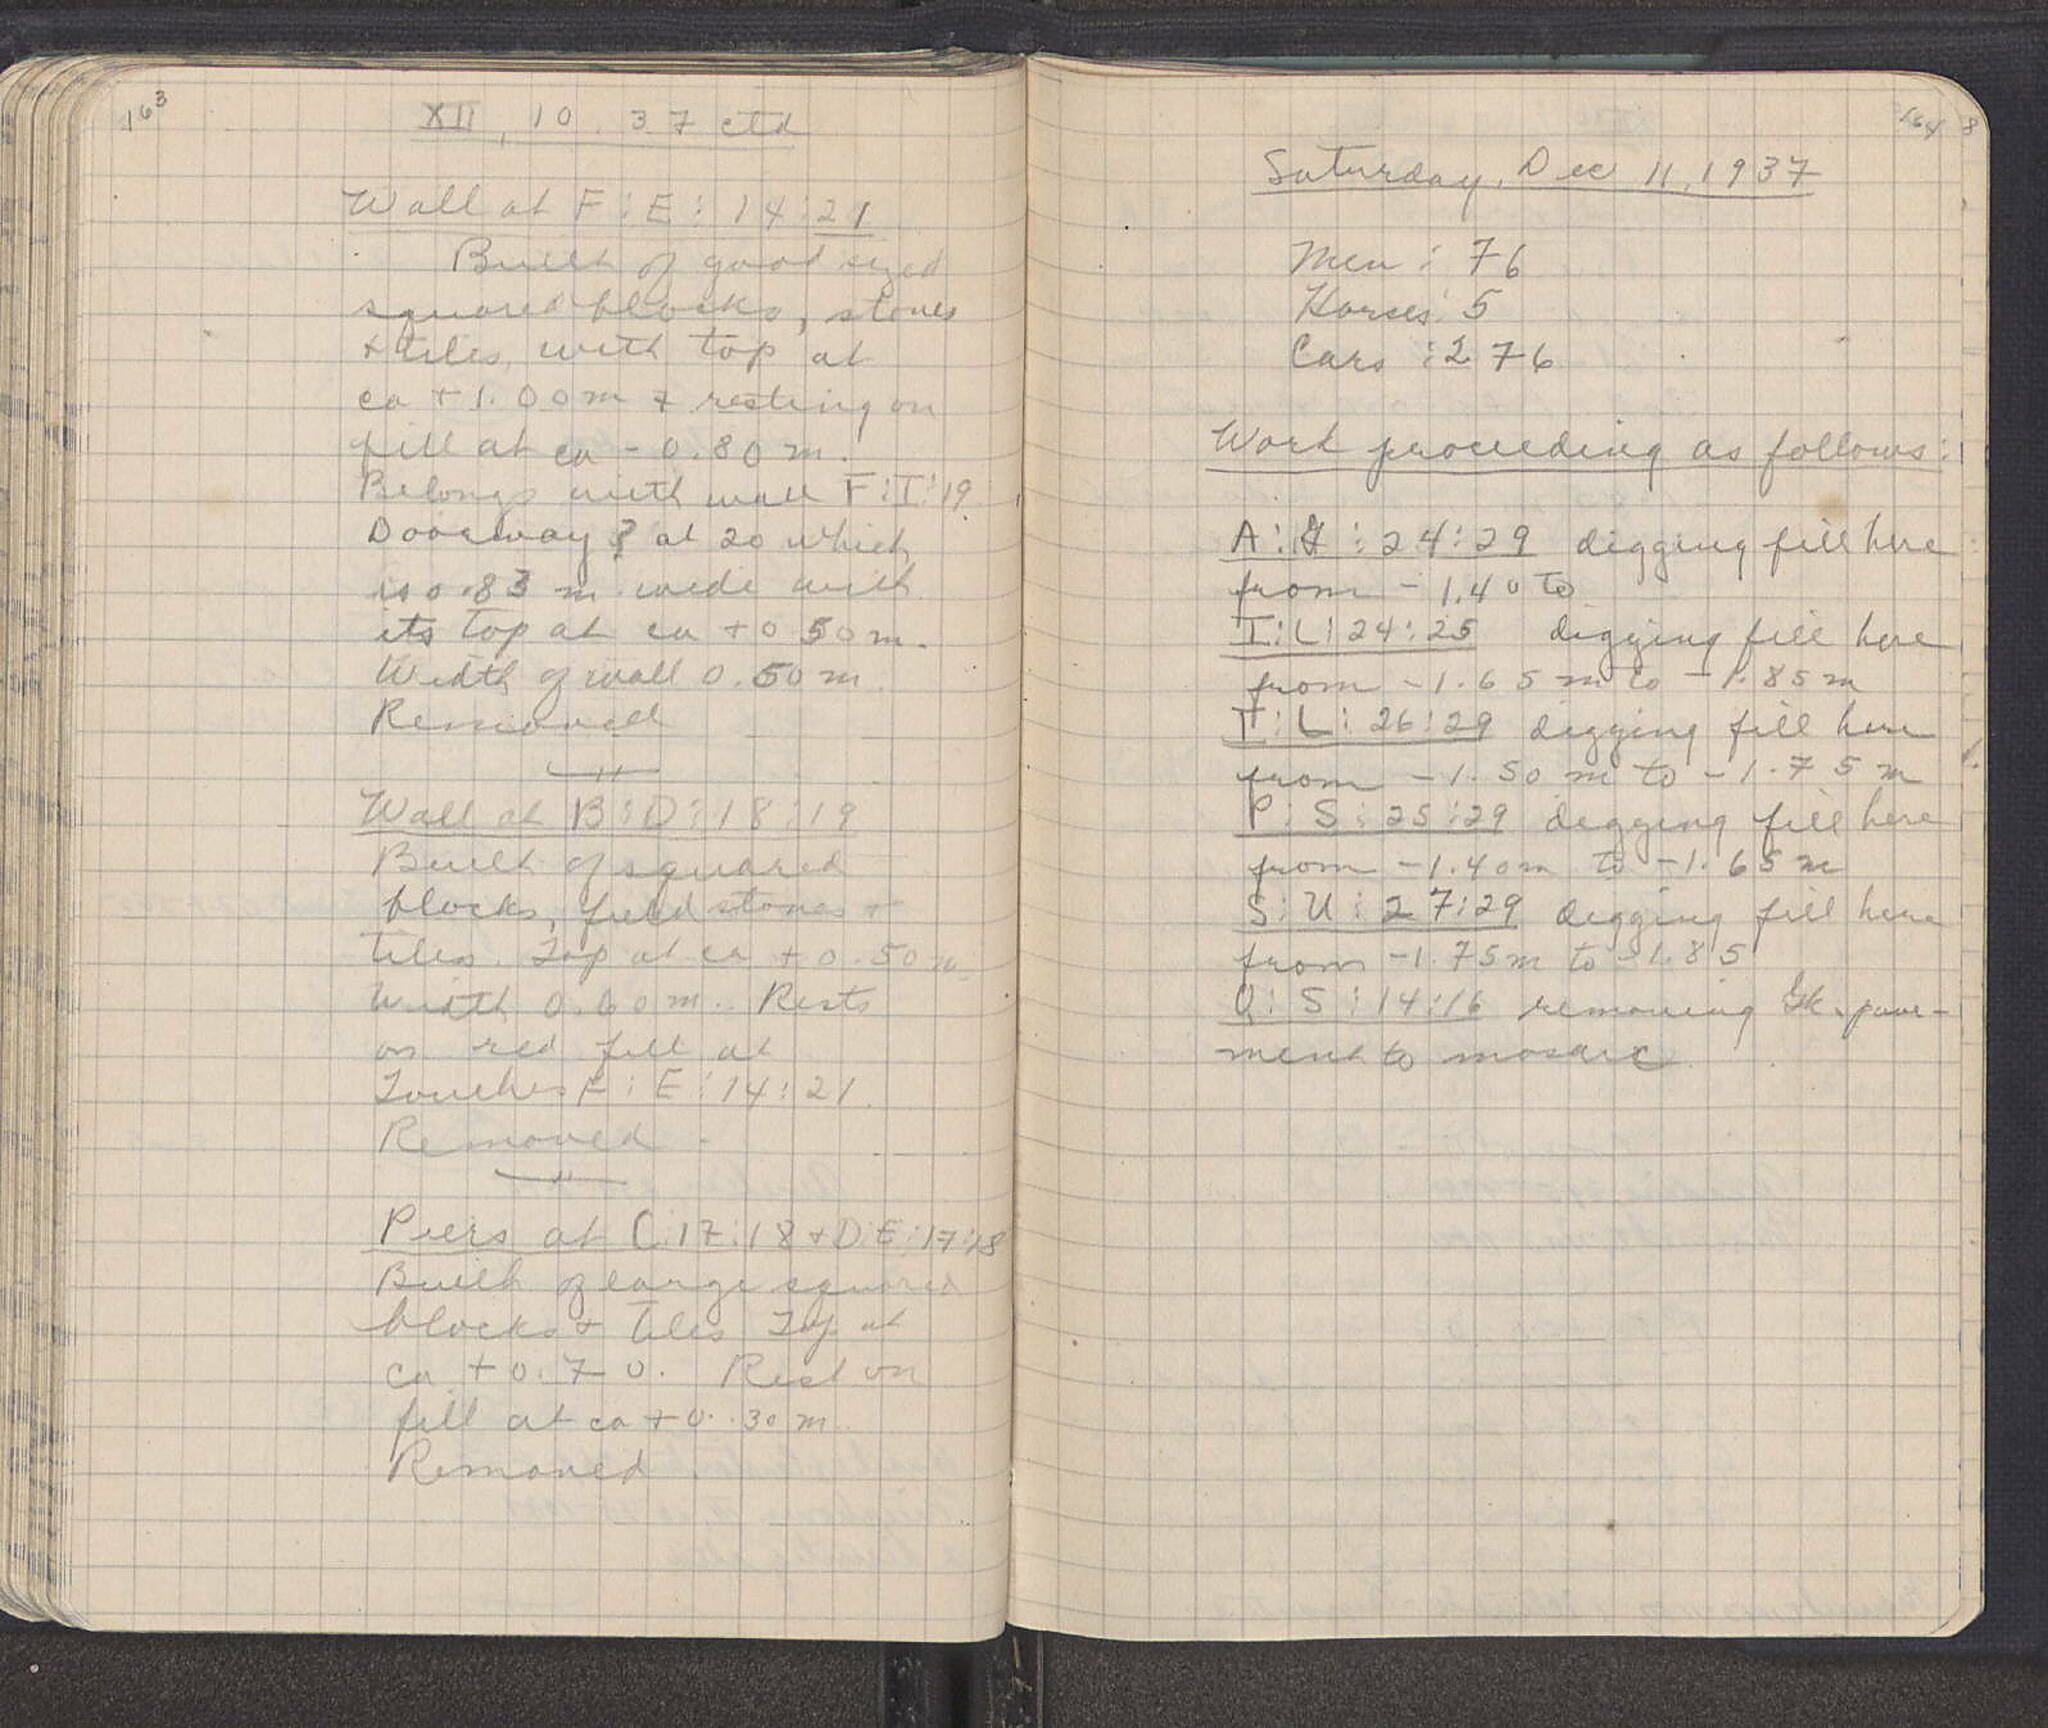 163
XII, 10. 37 ctd
Wall at F:E:14:21
Built of good sized
squared blocks, stones
+ tiles, with top at
ca + 1.00 m + resting on
fill at ca - 0.80 m.
Belongs with wall F:I:19.
Doorway? at 20 which
is 0.83 m wide with
its top at ca + 0 50 m.
Width of wall 0.50 m
Removed
Wall at B:D:18:19
Built of squared
blocks, field stones +
tiles. Top at ca + 0.50 m.
Width 0.60 m. Rests
on red fill at
Touches F:E:14:21.
Removed.
Piers at C:17:18 + D:E:17:18
Built of large squared
blocks + tiles Top at
ca + 0.70. Rest on
fill at ca + 0.30 m
Removed.
164
Saturday, Dec 11, 1937
Men: 76
Horses: 5
Cars: 276
Work proceeding as follows:
A: :24:29 digging fill here
from - 1.40 to
I:L:24:25 digging fill here
from - 1.65 m to - 1.85 m
I:L:26:29 digging fill here
from - 1.50 m to - 1.75 m
P:S:25:29 digging fill here
from - 1.40 m to - 1.65 m
S:U:27:29 digging fill here
from - 1.75 m to - 1.85
Q:S:14:16 removing Gk. pave-
ment to mosaic